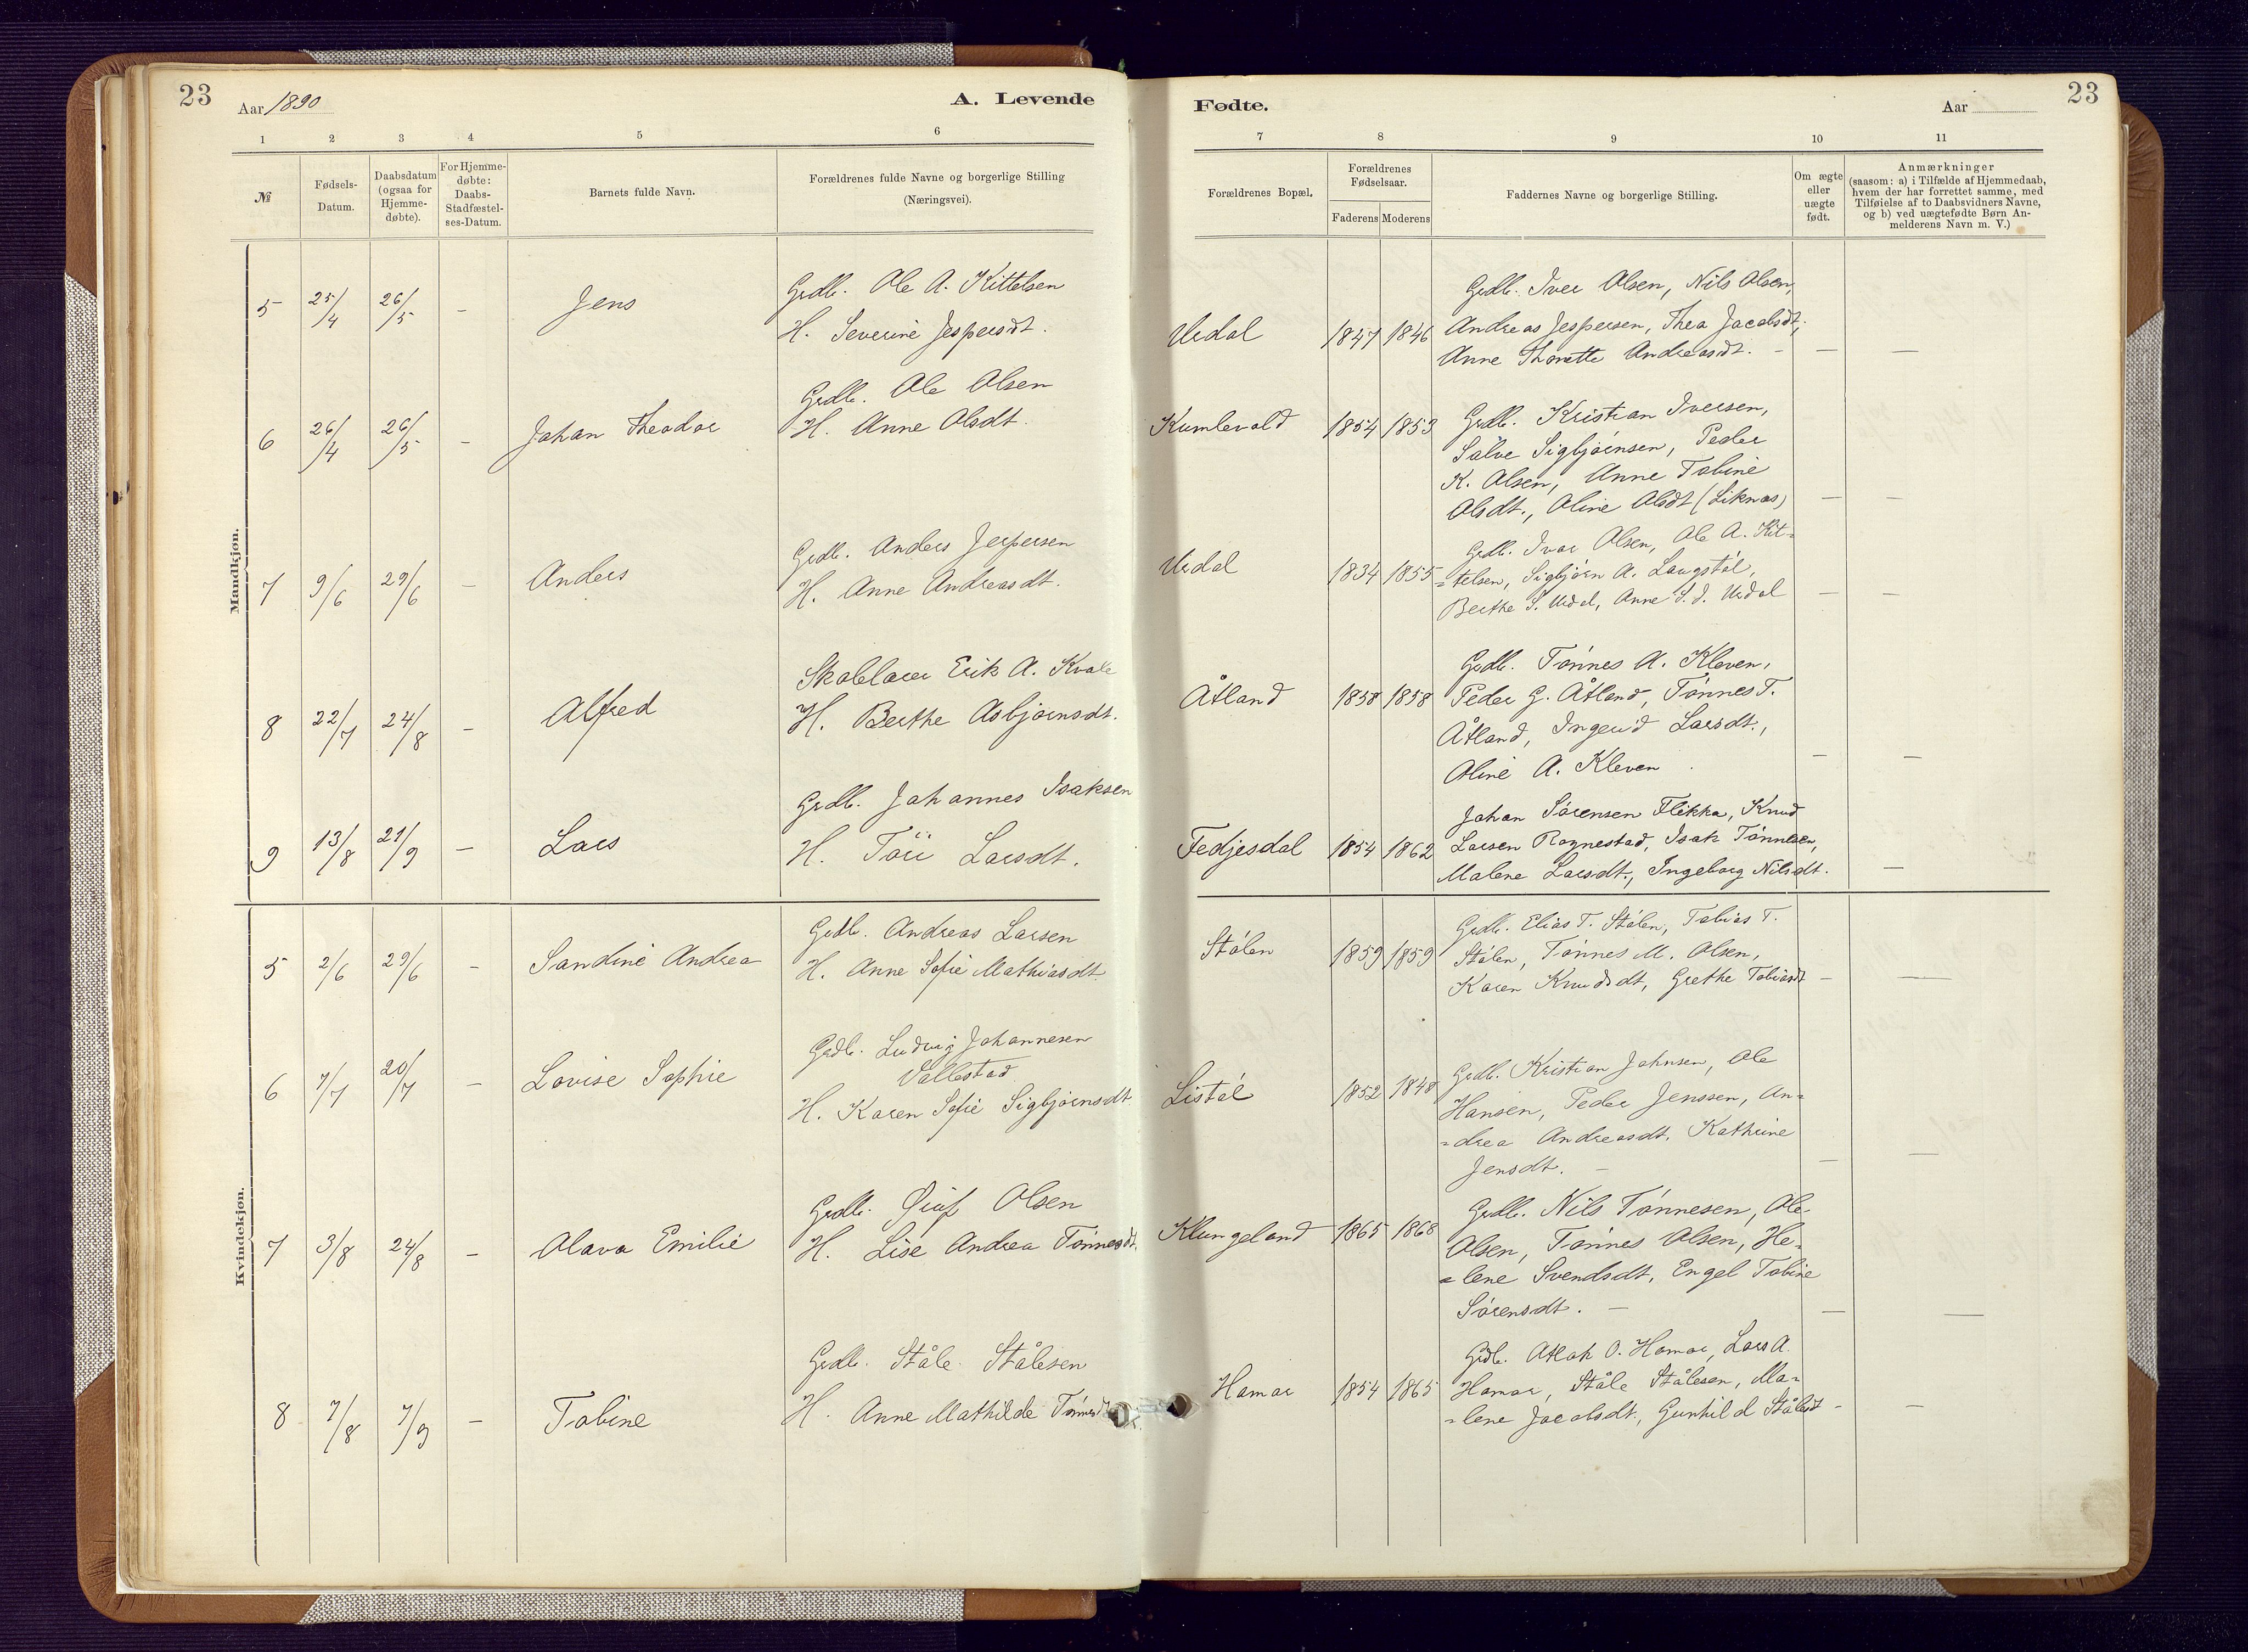 23
Aar 1890
A. Levende
Fødte.
Aar
23
1 2 3 4 5 6 7 8 9 10 11
№
Fødsels-
Datum.
Daabsdatum
(ogsaa for
Hjemme-
døbte).
For Hjemme-
døbte:
Daabs-
Stadfæstel-
ses-Datum.
Barnets fulde Navn.
Forældrenes fulde Navne og borgerlige Stilling
(Næringsvei).
Forældrenes Bopæl.
Forældrenes
Fødselsaar.
Faderens Moderens
Faddernes Navne og borgerlige Stilling.
Om ægte
eller
uægte
født.
Anmærkninger
(saasom: a) i Tilfælde af Hjemmedaab,
hvem der har forrettet samme, med
Tilføielse af to Daabsvidners Navne,
og b) ved uægtefødte Børn An-
melderens Navn m. V.)
Mandkjøn.
5 25/4 26/5 - Jens
Grdb. Ole A. Kittelsen
H. Severine Jespersdt.
Urdal 1847 1846
Grdb. Iver Olsen, Nils Olsen,
Andreas Jespersen, Thea Jacobsdt,
Anne Thorette Andreasdt. - — —
6 26/4 26/5 - Johan Theodor
Grdb. Ole Olsen
H. Anne Olsdt.
Kumlevold 1854 1853
Grdb. Kristian Iversen,
Sálve Sigbjørnsen, Peder
K. Olsen, Anne Tobine
Olsdt., Oline Olsdt (Liknæs) — —
7 9/6 29/6 - Anders
Grdb. Anders Jespersen
H. Anne Andreasdt.
Urdal 1834 1855
Grdb. Ivar Olsen, Ole A. Kit=
=telsen, Sigbjørn A. Laugstøl,
Berthe S. Urdal, Anne S. d. Urdal — —
8 22/7 24/8 - Alfred
Skolelærer Erik A. Kvale
H. Berthe Asbjørnsdt.
Åtland 1858 1858
Grdb. Tønnes A. Kleven,
Peder G. Åtland, Tønnes T.
Åtland, Ingerid Larsdt.,
Oline A. Kleven — —
9 13/8 21/9 - Lars
Grdb. Johannes Isaksen
H. Tóri Larsdt.
Fedjesdal 1854 1862
Johan Sørensen Flikka, Knud
Larsen Rognestad, Isak Tønnesen,
Malene Larsdt., Ingeborg Nilsdt. —
Kvindekjøn.
5 2/6 29/6 - Sandine Andrea
Grdb. Andreas Larsen
H. Anne Sofie Mathiasdt.
Stølen 1859 1859
Grdb. Elias T. Stølen, Tobias T.
Stølen, Tønnes M. Olsen,
Karen Knudsdt, Grethe Tobiasdt — —
6 7/7 20/7 - Lovise Sophie
Grdb. Ludvig Johannesen
Vallestad
H. Karen Sofie Sigbjørnsdt
Listøl 1852 1848
Grdb. Kristian Johnsen, Ole
Hansen, Peder Jenssen, An=
=drea Andreasdt, Kathrine
Jensdt. - — —
7 3/8 24/8 - Olava Emilie
Grdb. Oluf Olsen
H. Lise Andrea Tønnesdt.
Klungeland 1865 1868
Grdb. Nils Tønnesen, Ole
Olsen, Tønnes Olsen, He=
=lene Svendsdt, Engel Tobine
Sørensdt. — — —
8 7/8 7/9 - Tobine
Grdb. Ståle Stålesen
H. Anne Mathilde Tønnesdt.
Hamar 1854 1865
Grdb. Atlak O. Hamar, Lars A.
Hamar, Ståle Stålesen, Ma=
=lene Jacobsdt., Gunhild Stålesdt - —